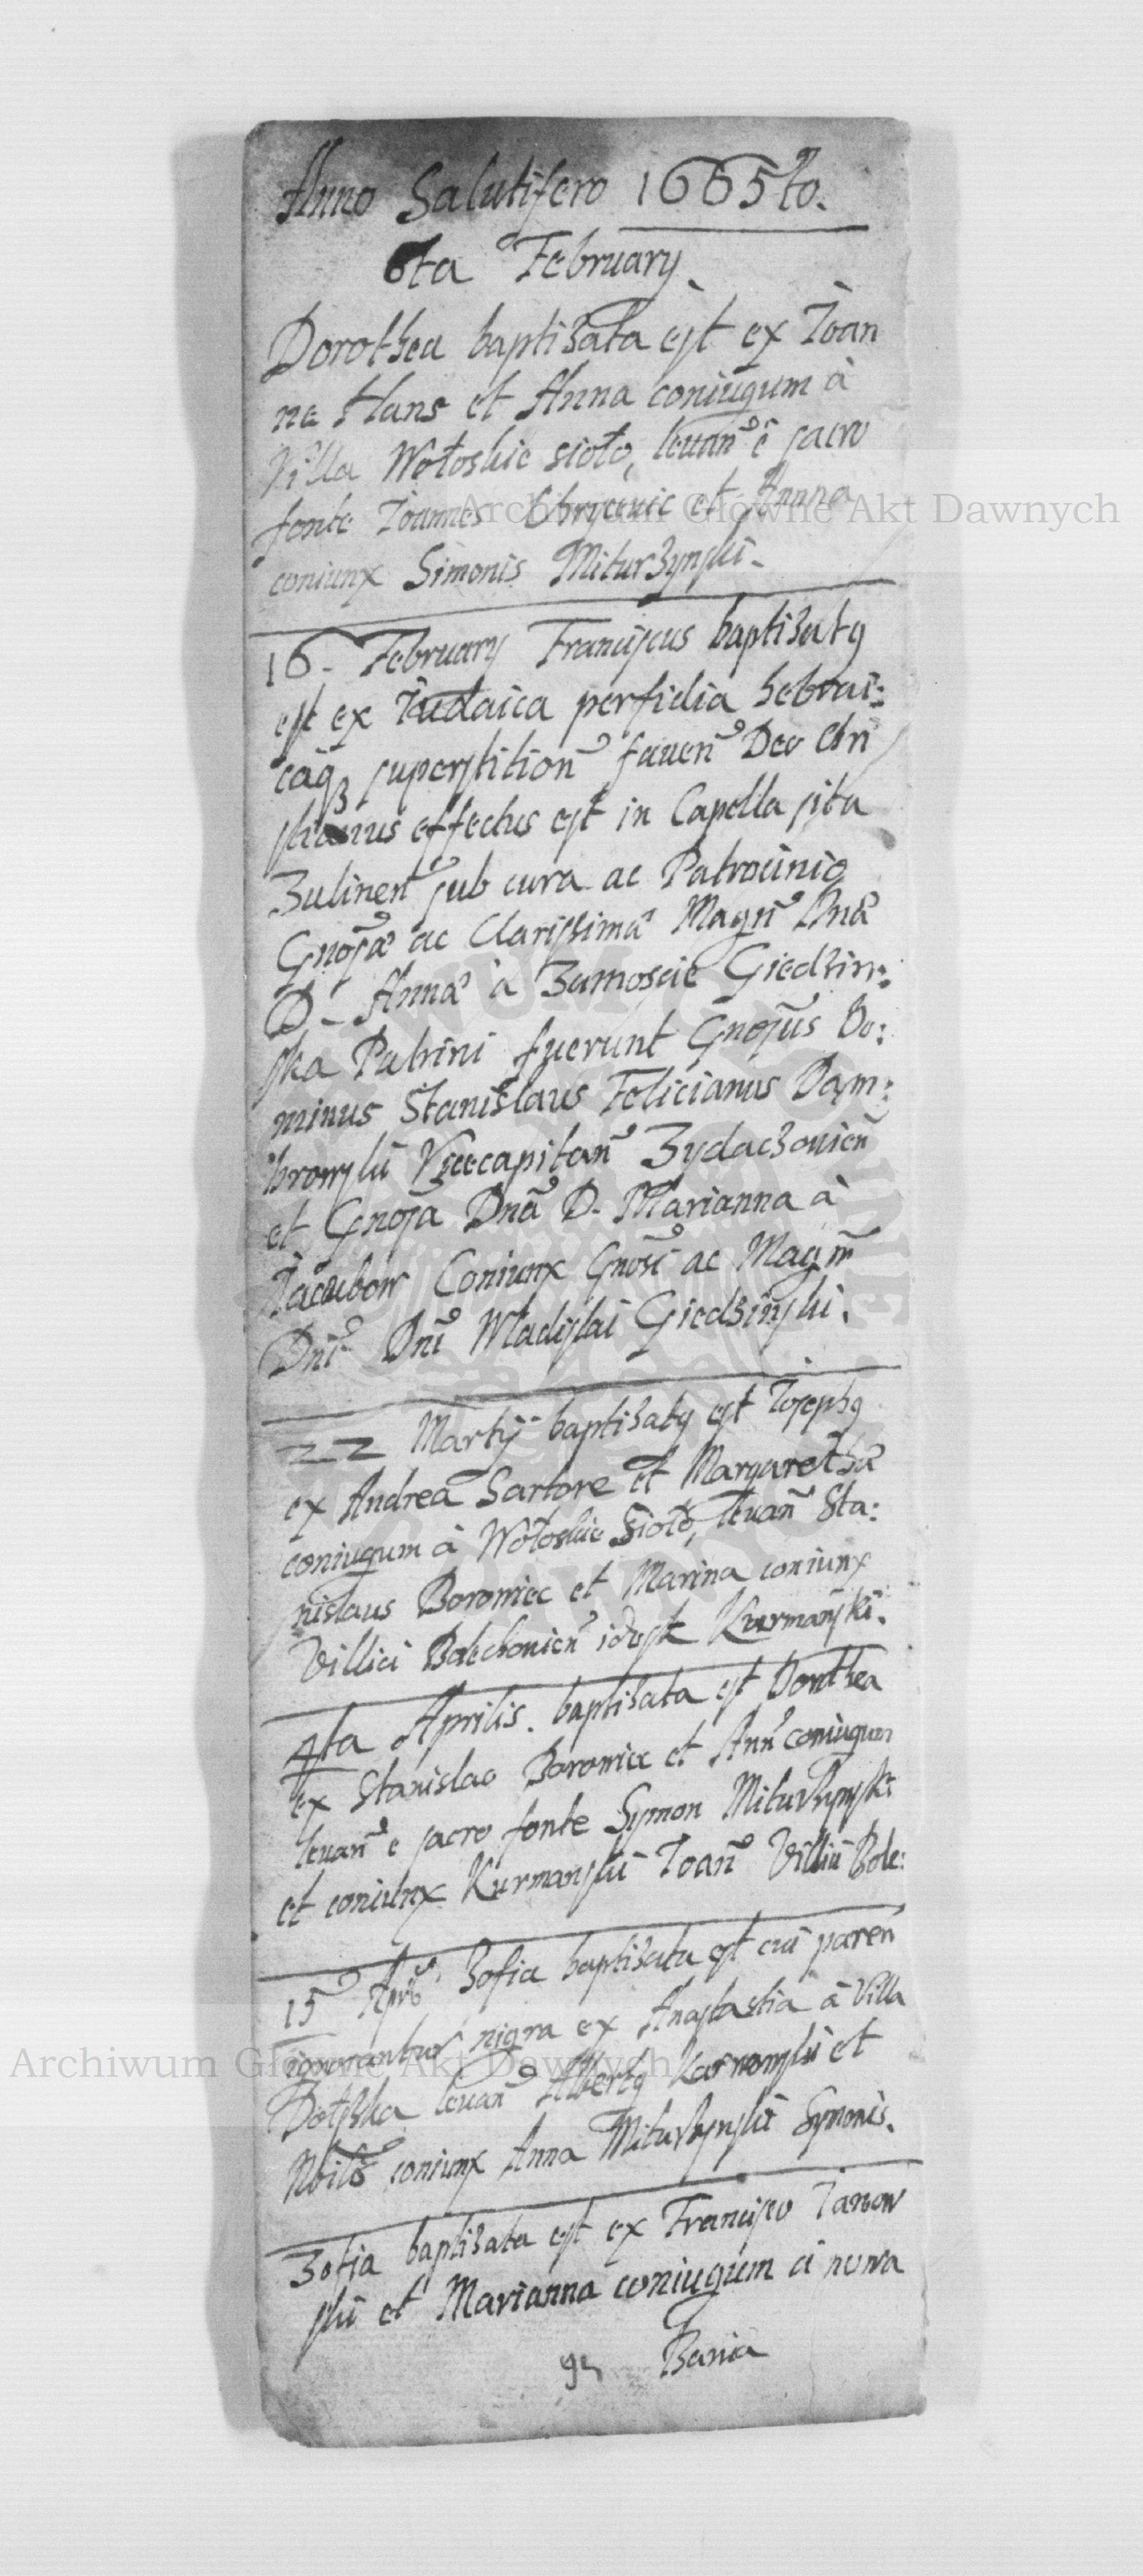 Anno Salutifero 1665to.
6ta February
Dorothea baptisata est ex Ioan
ne Hans et Anna coniugum à
Villa Wołoskie sioło, leuan̄ è sacro
fonte Ioannes et Annna
coniunx Simonis Miturzynski.
16. February Franciscus baptisatꝯ
est ex Iudaica perfidia hebrai:
caqꝫ superstition̄ fauen̄ Deo Chri
stianus effectus est in Capella sita
Zulinen̄ sub cura ac Patrocinio
Gnosæ ac Clarissimæ Magn̄ Dnæ
D. Annæ à Zamoscie Giedzin:
ska Patrini fuerunt Gnosus Do:
minus Stanislaus Felicianus Dąm:
browski Vicecapitan̄ Zydaczouien̄
et Gnosa Dnā D. Marianna à
Iacubow Coniunx Gnosi ac Magn̄
Dnī Dnī Władislai Giedzinski.
22 Martij baptisatꝯ est Iosephꝯ
ex Andrea Sartore et Margaretha
coniugum à Wołoskie Sioło, leuan̄ Sta:
nislaus Borowiec et Marina coniunx
Villici Bolechouien̄ id est Kurmanski.
4ta Aprilis. baptisata est Dorothea
ex Stanislao Borowiec et Ann̄ coniugum
leuan̄ e sacro fonte Symon Miturzynski
et coniunx Kurmanski Ioan̄ Villici Bole:
15 Apr. Zofia baptisata est cui paren
ignorantur nigra ex Anastastia à Villa
leuan̄ Albertꝯ Karnowski et
Nbilis coniunx Anna Miturzynski Symonis.
Zofia baptisata est ex Francisco Ianow
ski et Marianna coniugum à nowa
Bania
Archiwum Główne Akt Dawnych
Archiwum Główne Akt Dawnych